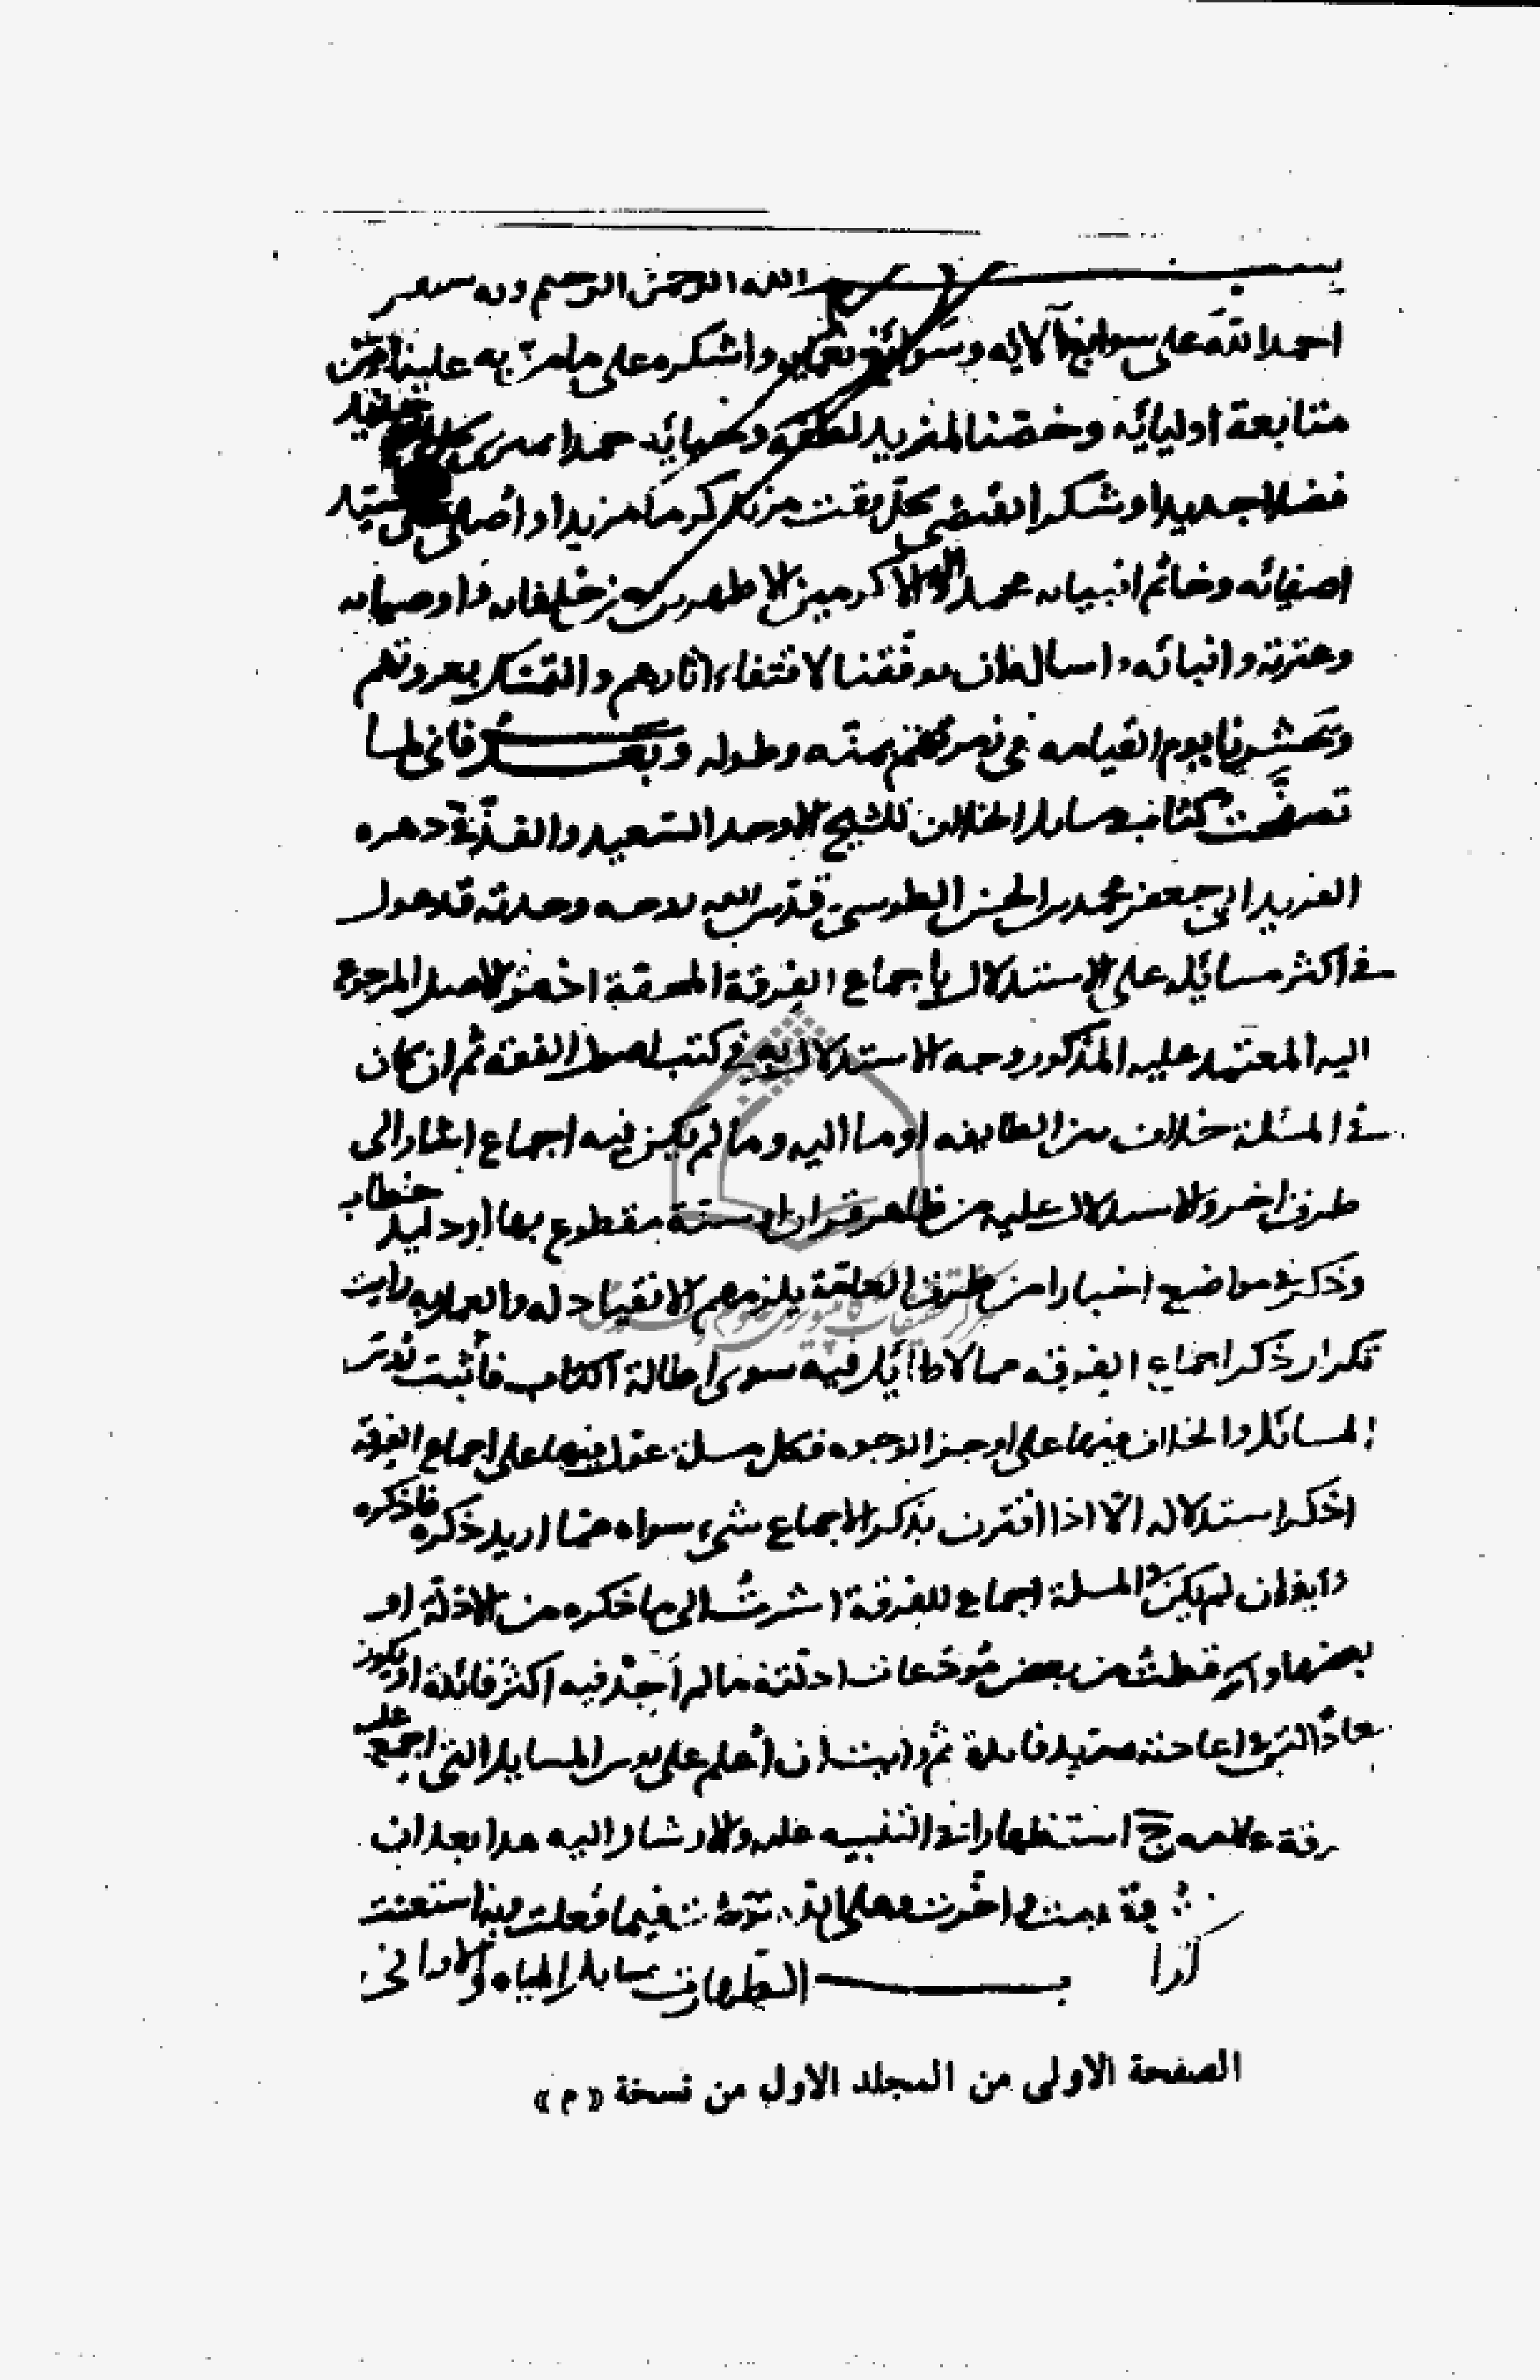 بسم الله الرحمن الرحيم وبه
احمد الله على سوابغ آلائه وسوائغ نعمائه واشكره على ما من به علينا من
متابعة اوليائه وخصنا لمزيد لطفه وحبائه حمدا
فضلا جديدا وشكرا يقتضى بكل وقت من كرمه مزيدا وأصلى على سيد
اصفيائه وخاتم انبيائه محمد واله الاكرمين الاطهرين من خلفائه واوصيائه
وعترته وانبائه واساله ان يوفقنا لاقتفاء اثارهم والتمسك بعروتهم
ويحشرنا يوم القيامه فى زمرتهم بمنه وطوله وبعد فانى لما
تصفحت كتاب مسايل الخلاف للشيخ الاوحد السعيد والفذ فى دهره
الفريد ابى جعفر محمد بن الحسن الطوسى قدس الله روحه وجدته قد عول
فى اكثر مسايله على الاستدلال باجماع الفرقة المحقة اذ هو الاصل المرجوع
اليه المعتمد عليه المذكور وجه الاستدلال به فى كتب اصول الفقه ثم ان كان
فى المسئلة خلاف من الطايفه اومأ اليه وما لم يكن فيه اجماع اشار الى
طرف اخر والاستدلال عليه من ظاهر قران او سنة مقطوع بها او دليل خطاب
وذكر فى مواضع اخبارا من طرف العامة يلزمهم الانقياد له والعمل به رايت
تكرار ذكر اجماع الفرقه مما لا طائل فيه سوى اطالة الكتاب فأثبت
المسائل والخلاف فيها على اوجز الوجوه فكل مسلة عول فيها على اجماع الفرقة
اذكر استدلاله الا اذا اقترن بذكر الاجماع شىء سواه مما اريد ذكره فاذكره
وان لم يكن فى المسلة اجماع للفرقة اشرت الى ما ذكره من الادلة او
بعضها واسقطت من بعض ادلته ما لم أجد فيه اكثر فائدة او يكون
معادا ليس فى اعادته مزيد فايدة ثم رايت ان أعلم على المسايل التى اجمع عليه
الفرقة علامه ج استظهارا فى التنبيه عليه والارشاد اليه هذا بعد ان
قدمت واخرت وعلى الله توكلت فيما فعلت وبه استعنت
كتاب الطهارة مسايل المياه والاوانى
الصفحة الاولى من المجلد الاول من نسخة « م »